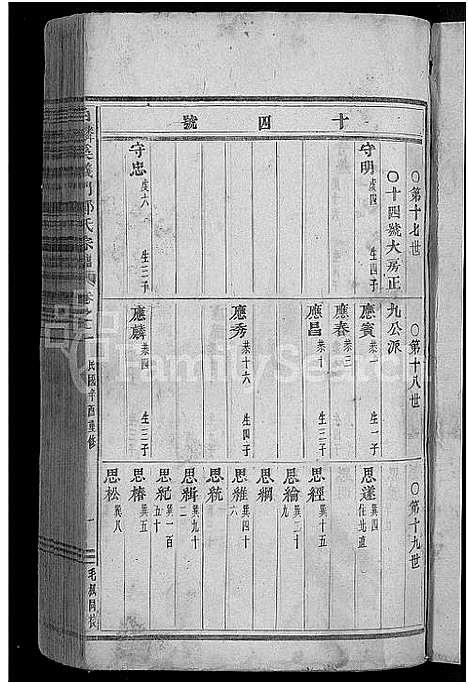 十四號
○第十七世
○十四號大房正九公派
守明 虔四 生四子
守忠 虔六 生三子
○第十八世
應賓 恭一 生一子
應春 恭三
應昌 恭十 生三子
應秀 恭十六 生四子
應麟 恭四 生三子
○第十九世
思達 巽四 住北直
思經 巽十五
思綸 巽二十九
思綱
思維 巽四十六
思統
思緝 巽九十二
思紀 巽一百五十
思椿 巽五
思松 巽八
義門鄭氏宗譜 卷之一 民國辛酉重修 一
FamilySearch